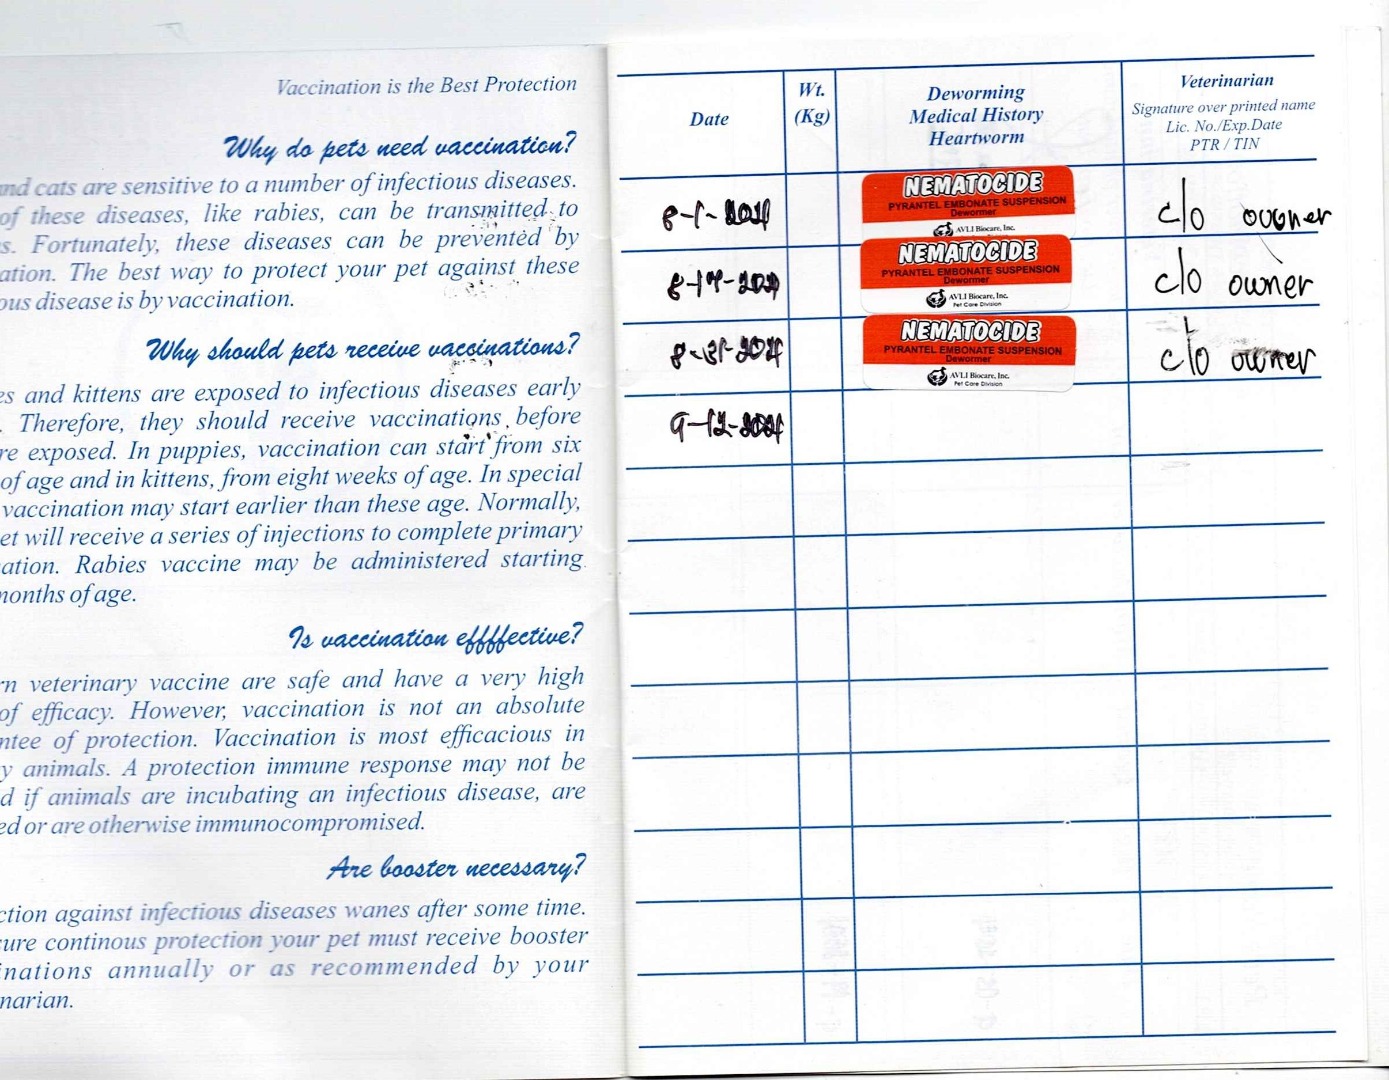 Vaccination is the Best Protection
Why do pets need vaccination?
nd cats are sensitive to a number of infectious diseases.
of these diseases, like rabies, can be transmitted to
s. Fortunately, these diseases can be prevented by
ation. The best way to protect your pet against these
ous disease is by vaccination.
Why should pets receive vaccinations?
es and kittens are exposed to infectious diseases early
. Therefore, they should receive vaccinations before
re exposed. In puppies, vaccination can start from six
of age and in kittens, from eight weeks of age. In special
vaccination may start earlier than these age. Normally,
et will receive a series of injections to complete primary
ation. Rabies vaccine may be administered starting
months of age.
Is vaccination effffective?
rn veterinary vaccine are safe and have a very high
of efficacy. However, vaccination is not an absolute
ntee of protection. Vaccination is most efficacious in
y animals. A protection immune response may not be
d if animals are incubating an infectious disease, are
ed or are otherwise immunocompromised.
Are booster necessary?
ction against infectious diseases wanes after some time.
sure continous protection your pet must receive booster
inations annually or as recommended by your
narian.
Date
Wt.
(Kg)
Deworming
Medical History
Heartworm
Veterinarian
Signature over printed name
Lic. No./Exp.Date
PTR / TIN
8-1-2021
NEMATOCIDE
PYRANTEL EMBONATE SUSPENSION
Dewormer
AVLI Biocare, Inc.
c/o owner
NEMATOCIDE
PYRANTEL EMBONATE SUSPENSION
Dewormer
AVLI Biocare, Inc.
Pet Care Division
c/o owner
NEMATOCIDE
PYRANTEL EMBONATE SUSPENSION
Dewormer
AVLI Biocare, Inc.
Pet Care Division
c/o owner
9-12-2021